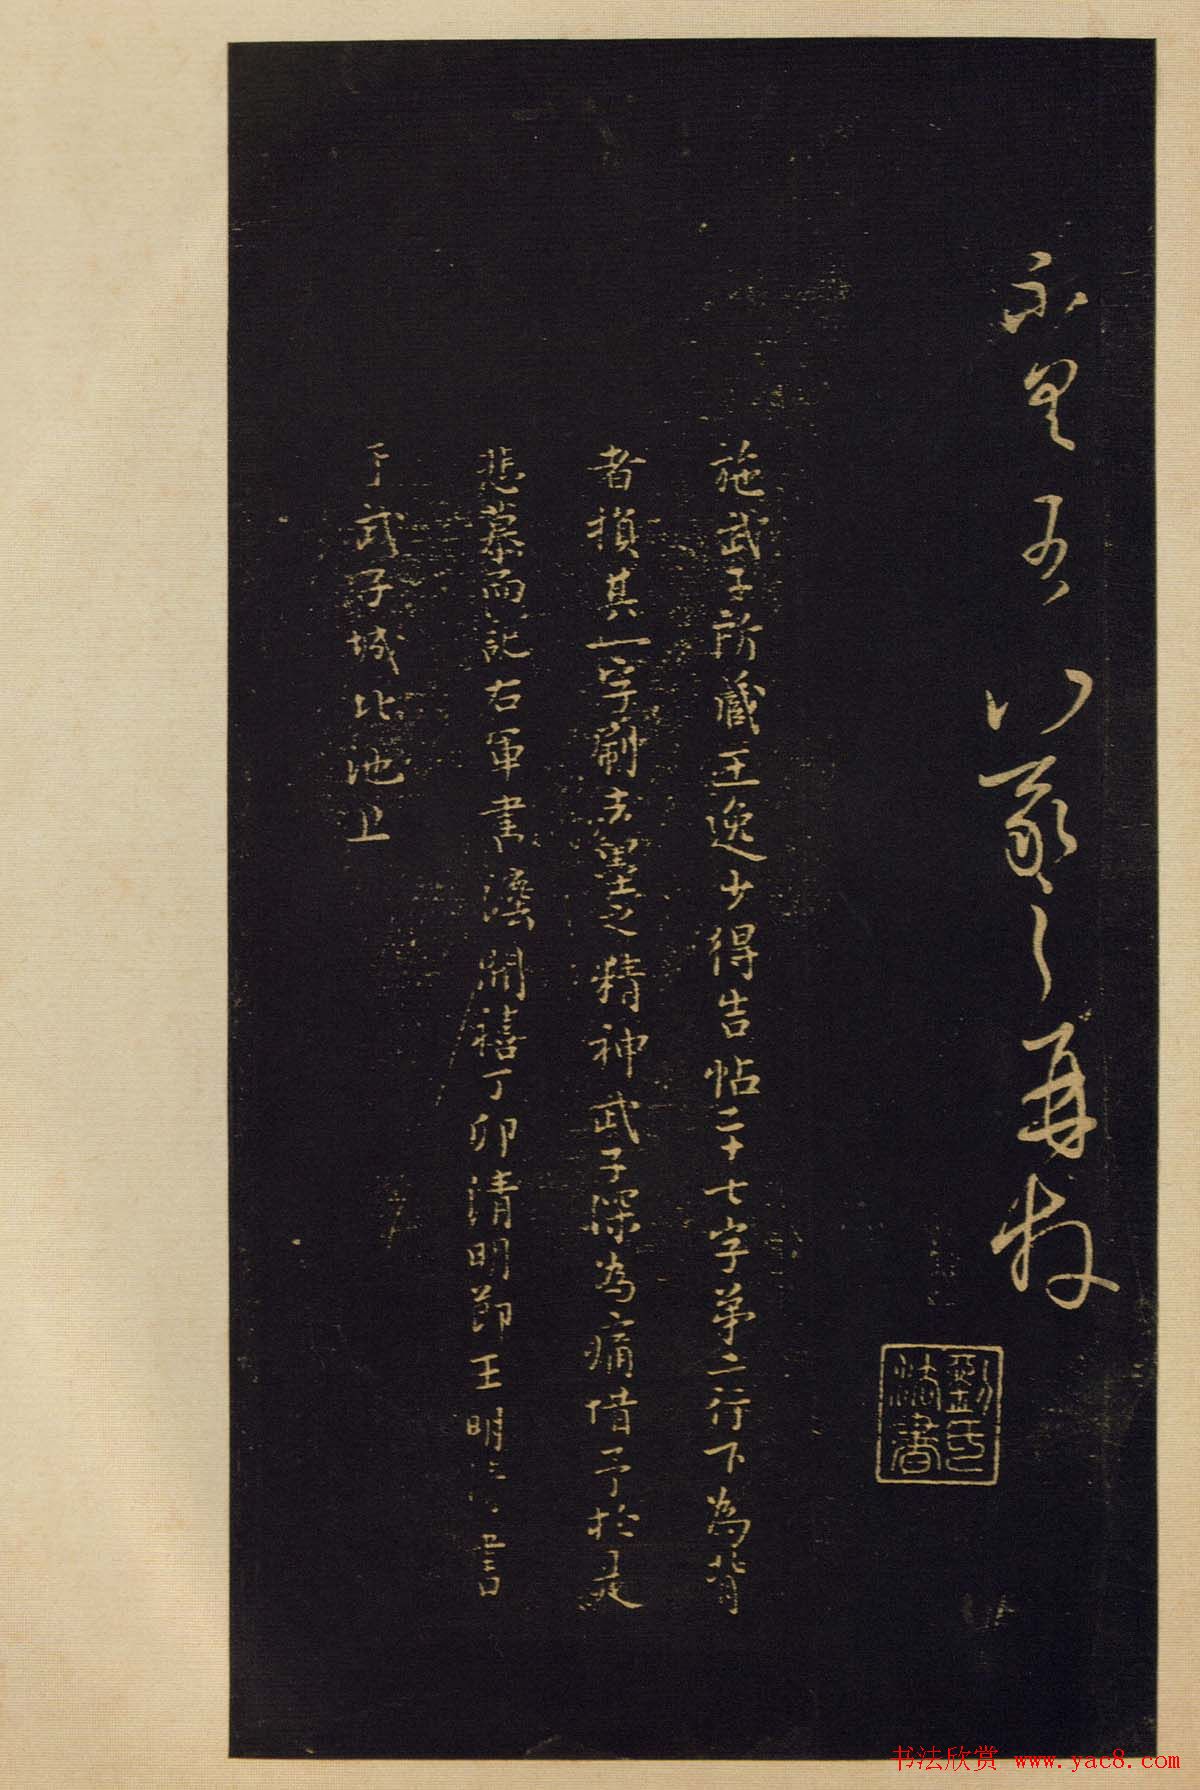 羲之再拜
劉氏法書
施武子所藏王逸少得告帖二十七字第二行下為背
者損其一字刷去墨之精神武子深為痛惜予於是
悲慕而記右軍書法開禧丁卯清明節王明書
于武子城北池上
书法欣赏 www.yac8.com